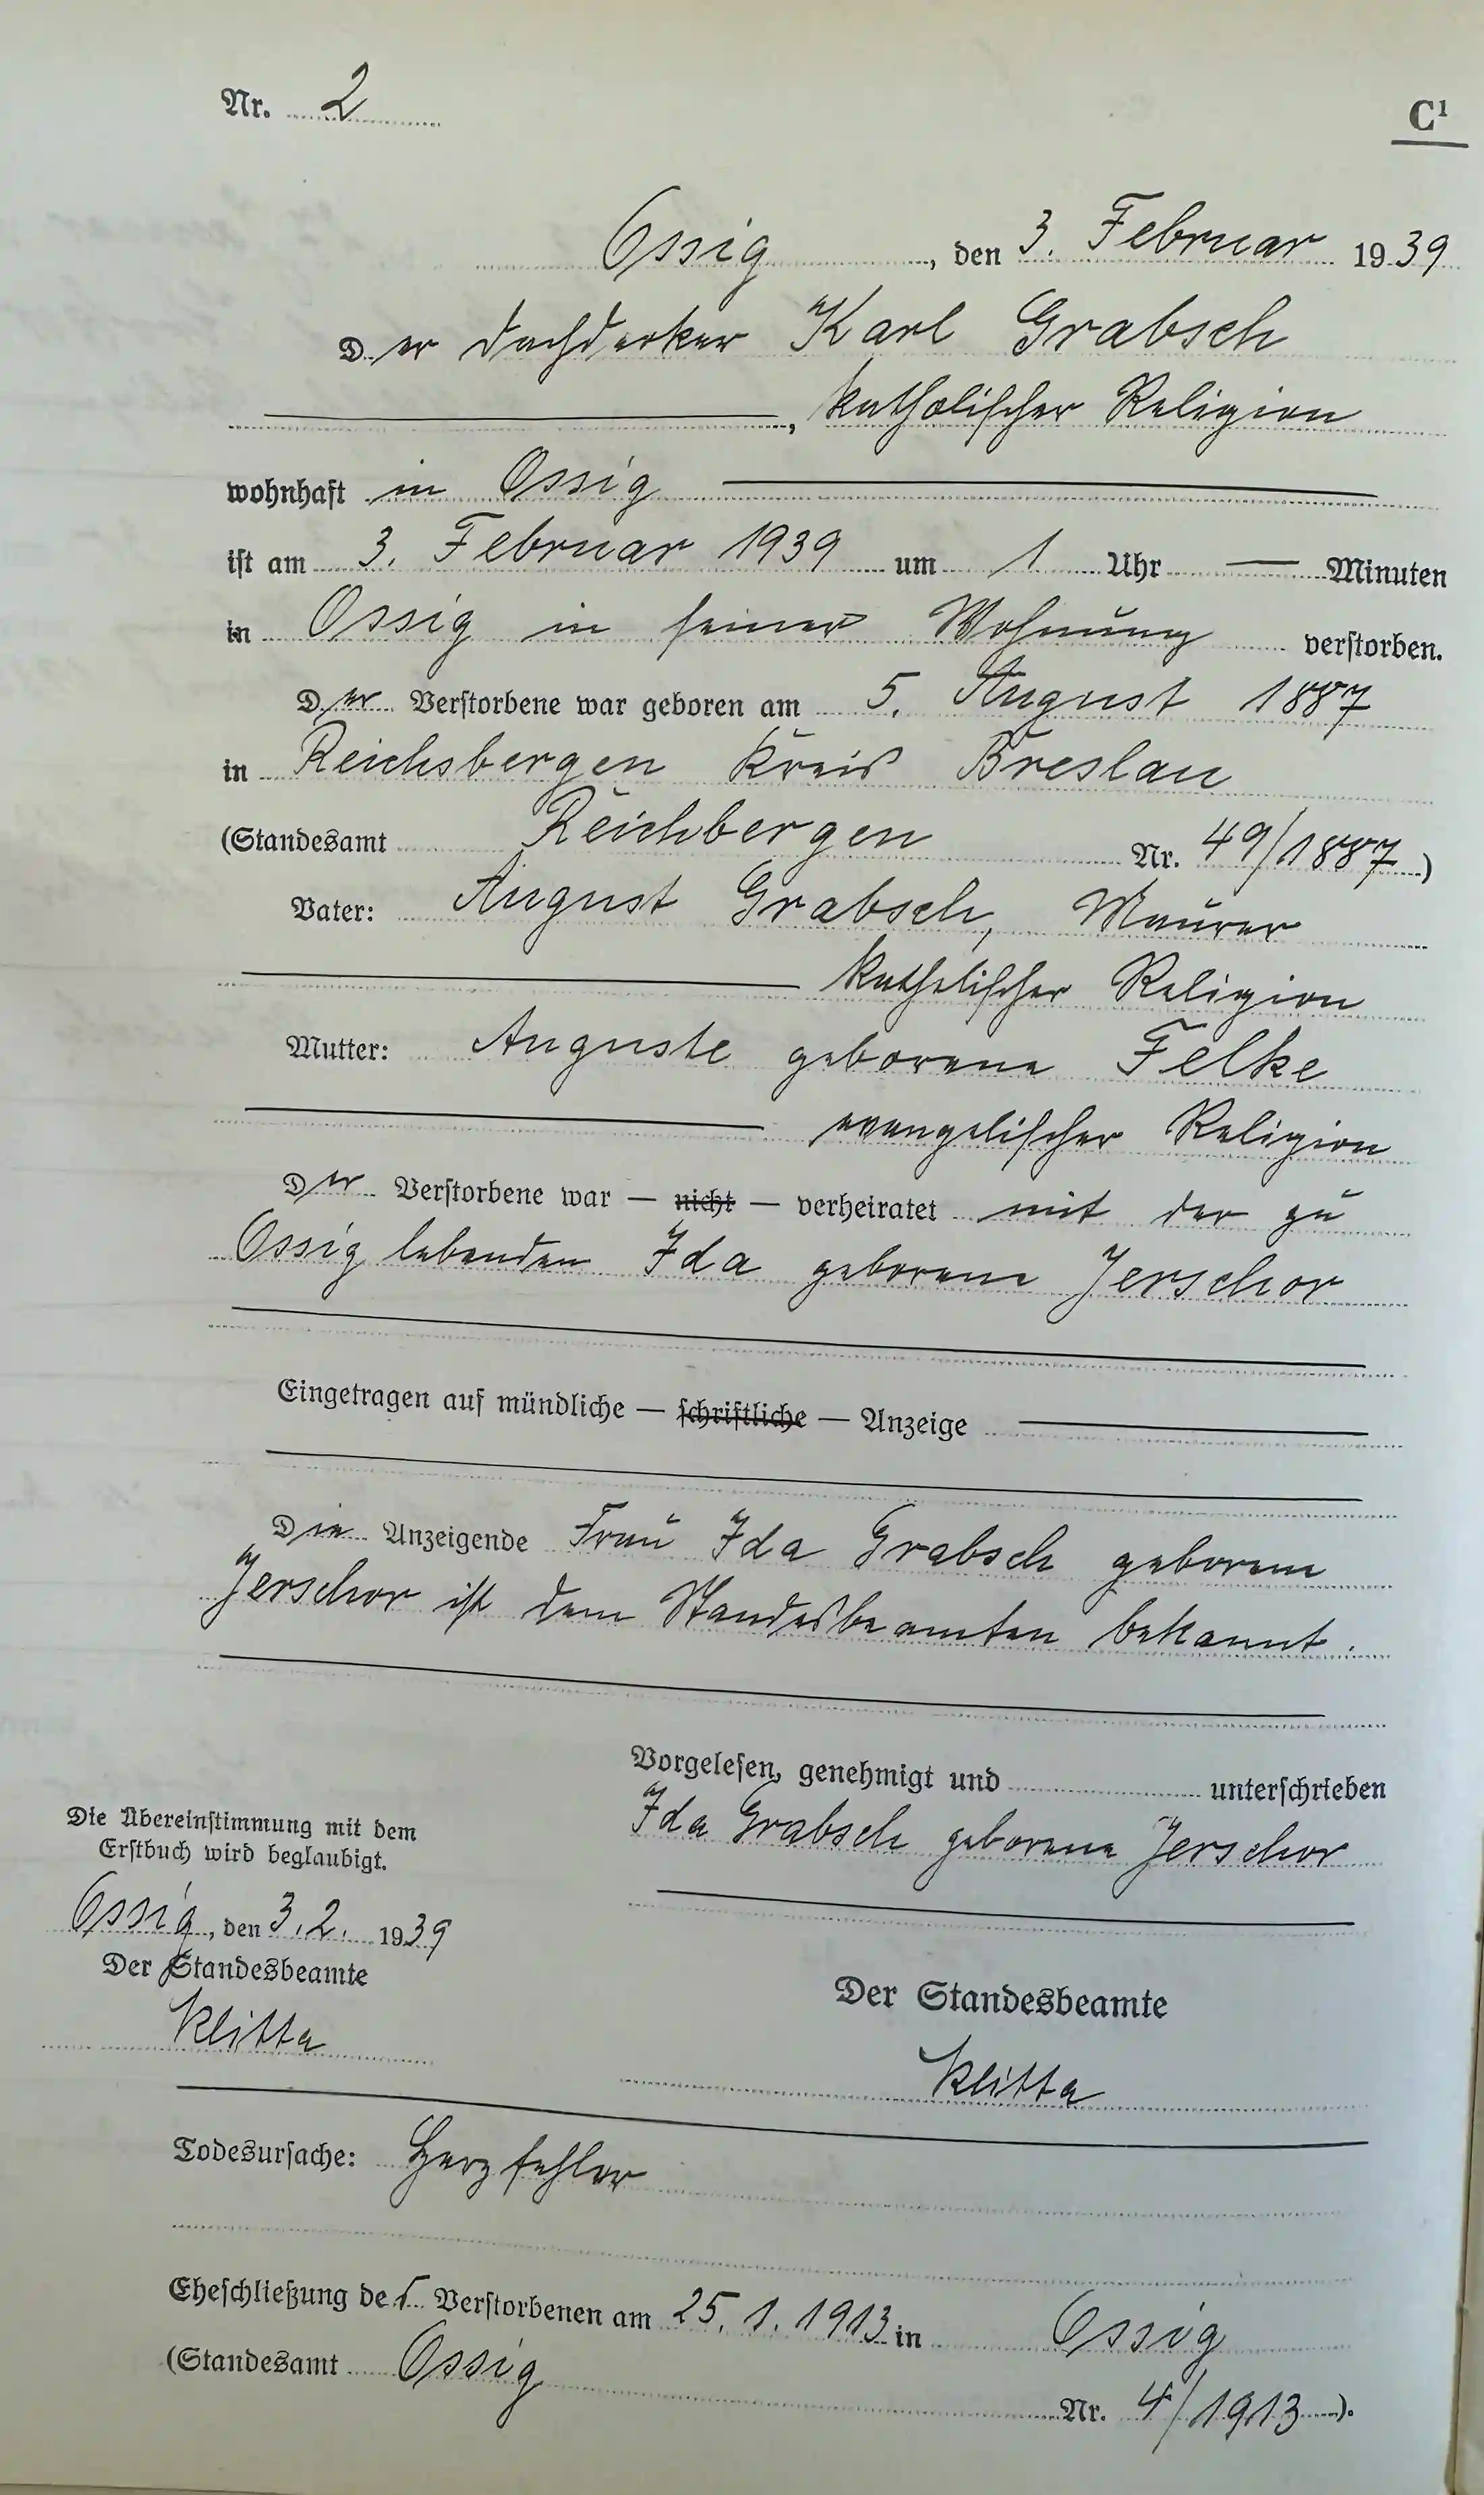 Nr. 2
C¹
Ossig, den 3. Februar 1939
Der Dachdecker Karl Grabsch
, katholischer Religion
wohnhaft in Ossig
ist am 3. Februar 1939 um 1 Uhr — Minuten
in Ossig in seiner Wohnung verstorben.
Der Verstorbene war geboren am 5. August 1887
in Reichsbergen Kreis Breslau
(Standesamt Reichbergen Nr. 49/1887)
Vater: August Grabsch, Maurer
katholischer Religion
Mutter: Auguste geborene Felke
evangelischer Religion
Der Verstorbene war — nicht — verheiratet mit der zu
Ossig lebenden Ida geborene Jerschor
Eingetragen auf mündliche — schriftliche — Anzeige
Die Anzeigende Frau Ida Grabsch geborene
Jerschor ist dem Standesbeamten bekannt.
Vorgelesen, genehmigt und unterschrieben
Ida Grabsch geborene Jerschor
Die Übereinstimmung mit dem
Erstbuch wird beglaubigt.
Ossig, den 3.2. 1939
Der Standesbeamte
Klitta
Der Standesbeamte
Klitta
Todesursache: Herzfehler
Eheschließung des Verstorbenen am 25. 1. 1913 in Ossig
(Standesamt Ossig Nr. 4/1913).